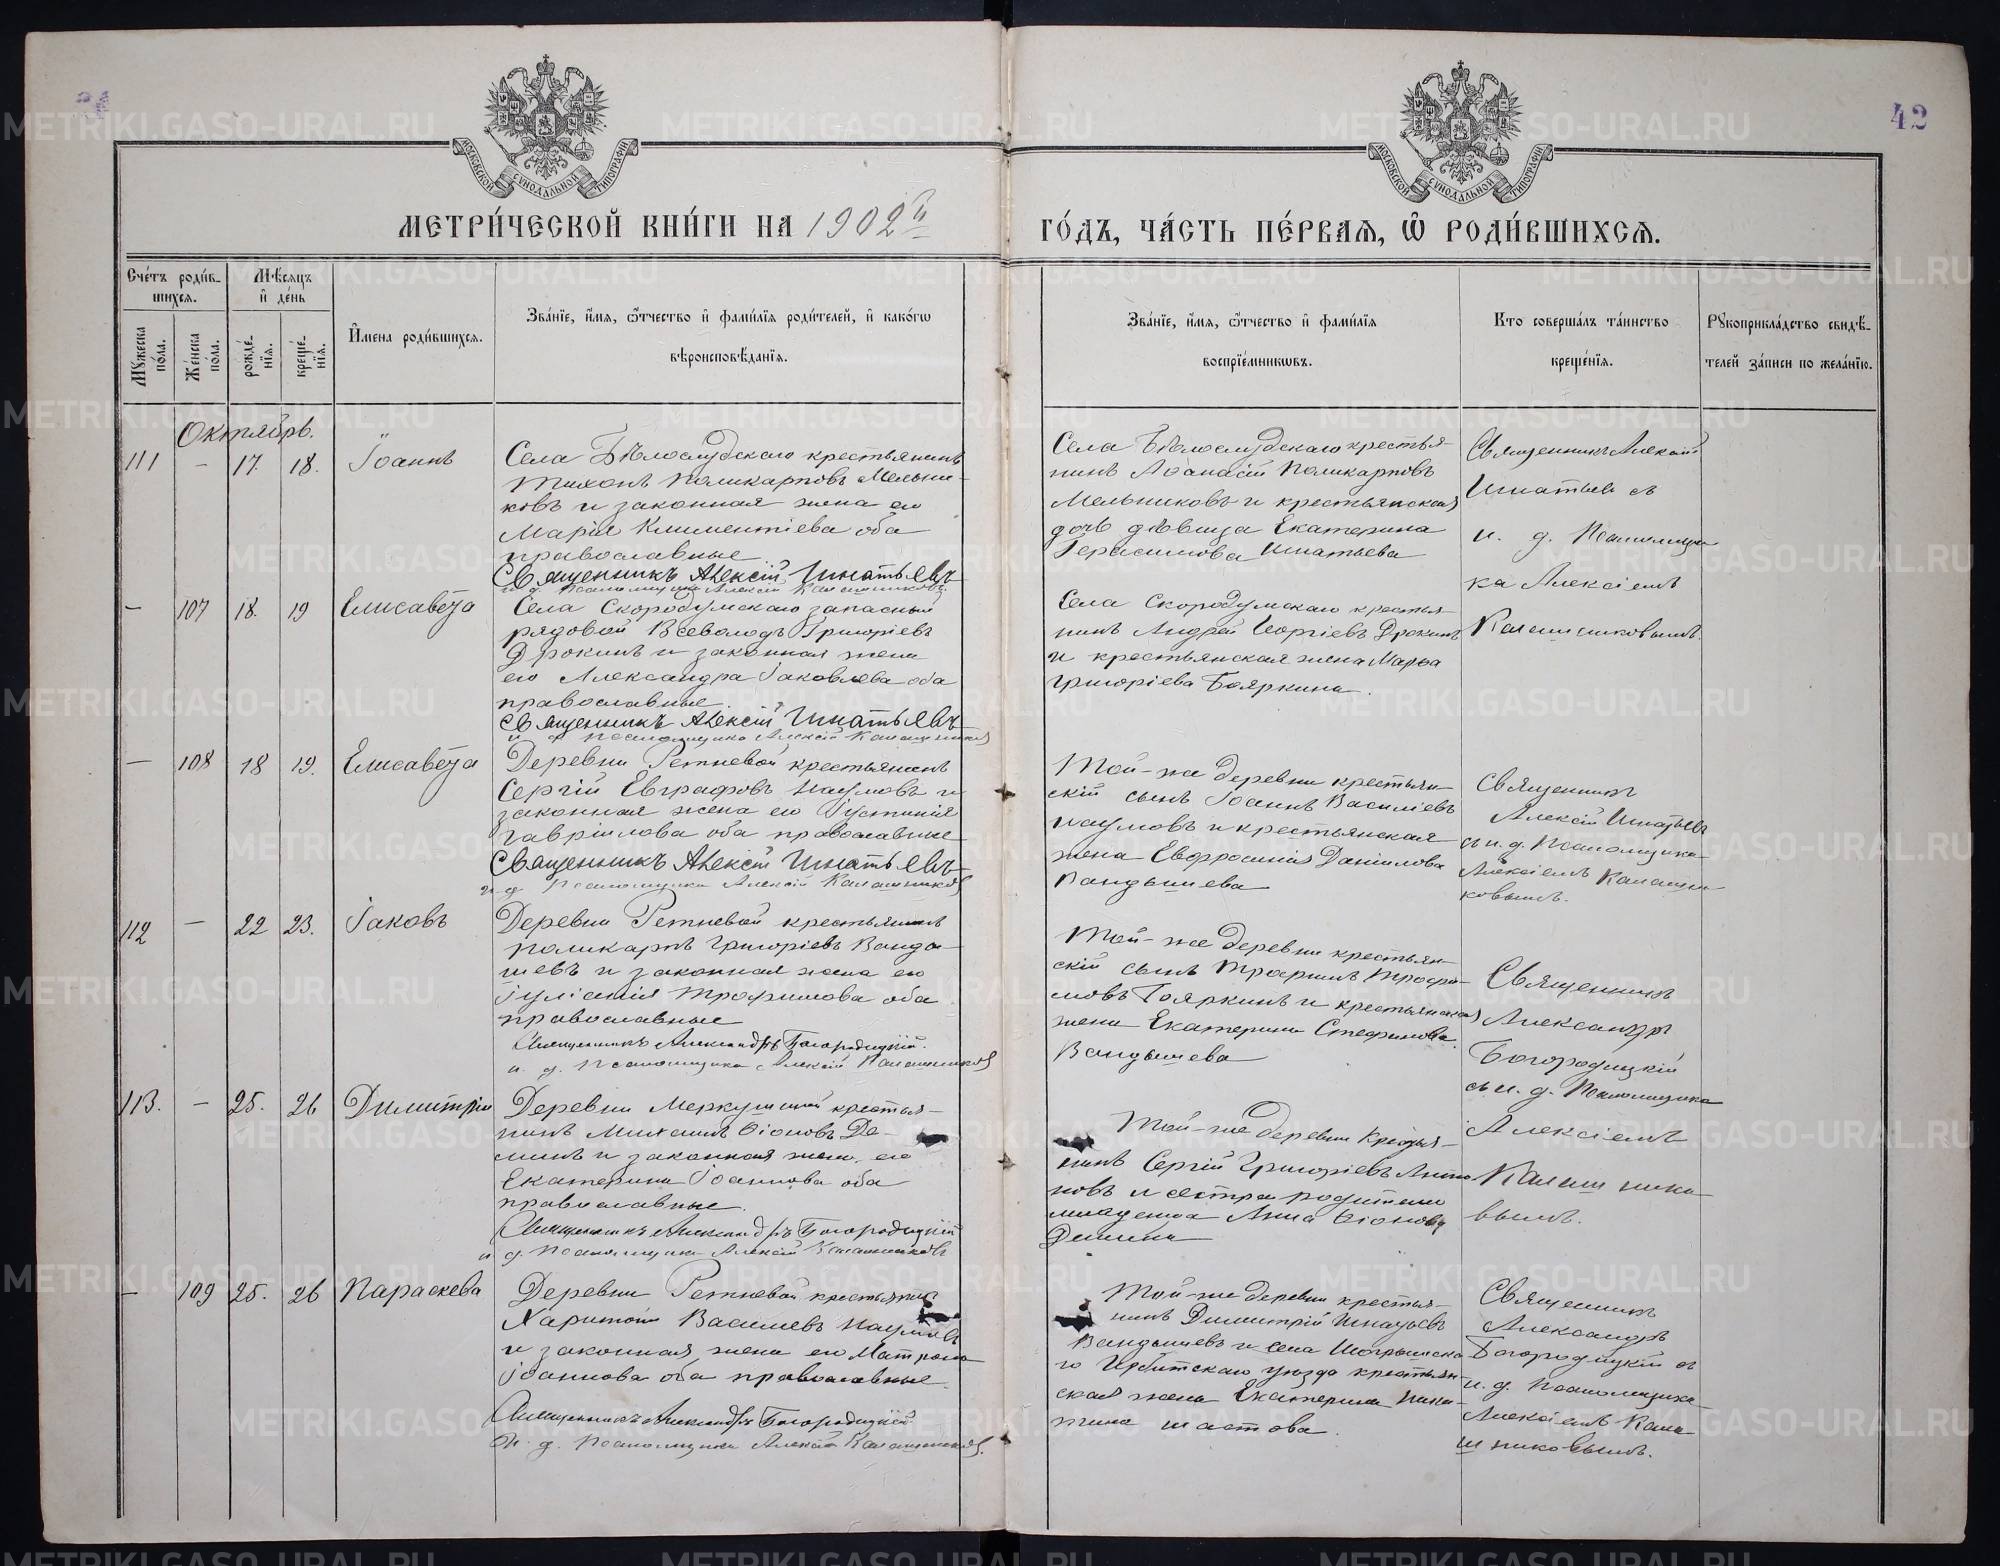 42
МОСКОВСКОЙ СѴНОДАЛЬНОЙ ТИПОГРАФІИ
МОСКОВСКОЙ СѴНОДАЛЬНОЙ ТИПОГРАФІИ
МЕТРИ́ЧЕСКОЙ КНИ́ГИ НА 1902й ГО́ДЪ, ЧА́СТЬ ПЕ́РВАЯ, Ѡ РОДИ́ВШИХСЯ.
Сче́тъ роди́в-
шихся.
Мужеска по́ла.
Же́нска по́ла.
Мѣ́сяцъ
и҆ де́нь
рожде́-
нїя.
креще́-
нїя.
И҆мена роди́вшихся.
Зва́нїе, и҆́мя, ѻ҆́тчество и҆ фами́лїя роди́телей, и҆ како́гѡ
вѣроисповѣ́данїя.
Зва́нїе, и҆́мя, ѻ҆́тчество и҆ фами́лїя
воспрїе́мникѡвъ.
Кто соверша́лъ та́инство
креще́нїя.
Рꙋкоприкла́дство свидѣ́-
телей за́писи по жела́нїю.
Октябрь.
111 – 17. 18. Іоаннъ
Села Бѣлослудскаго крестьянинъ
Тихонъ Поликарповъ Мельни-
ковъ и законная жена его
Марія Климентіева оба
православные
Священникъ Алексій Игнатьевъ
и. д. Псаломщика Алексій Калашниковъ
Села Бѣлослудскаго крестья-
нинъ Аѳанасій Поликарповъ
Мельниковъ и крестьянская
дочь дѣвица Екатерина
Герасимова Игнатьева
Священникъ Алексій
Игнатьевъ съ
и. д. Псаломщи-
ка Алексіемъ
Калашниковымъ.
– 107 18. 19 Елисавета
Села Скородумскаго запасный
рядовой Всеволодъ Григоріевъ
Дрокинъ и законная жена
его Александра Іаковлева оба
православные.
Священникъ Алексій Игнатьевъ
и. д. Псаломщика Алексій Калашников
Села Скородумскаго крестья-
нинъ Андрей Георгіевъ Дрокинъ
и крестьянская жена Марѳа
Григоріева Бояркина.
– 108 18 19. Елисавета
Деревни Ретневой крестьянинъ
Сергій Евграфовъ Наумовъ и
законная жена его Іустинія
Гавріилова оба православные
Священникъ Алексій Игнатьевъ
и. д. Псаломщика Алексій Калашников
Той-же деревни крестьян-
скій сынъ Іоаннъ Василіевъ
Наумовъ и крестьянская
жена Евфросинія Даніилова
Вандышева
Священникъ
Алексій Игнатьевъ
съ и. д. Псаломщика
Алексіемъ Калашни-
ковымъ.
112 – 22 23. Іаковъ
Деревни Ретневой крестьянинъ
Поликарпъ Григоріевъ Ванды-
шевъ и законная жена его
Іуліанія Трофимова оба
православные
Священникъ Александръ Богородицкій.
и. д. Псаломщика Алексій Калашников
Той-же деревни крестьян-
скій сынъ Трофимъ Трофи-
мовъ Бояркинъ и крестьянская
жена Екатерина Стефанова
Вандышева
Священникъ
Александръ
Богородицкій
съ и. д. Псаломщика
Алексіемъ
Калашнико-
вымъ.
113. – 25. 26 Димитрій
Деревни Меркушиной крестья-
нинъ Михаилъ Ѳіоновъ Де-
минъ и законная жена его
Екатерина Іоаннова оба
православные.
Священникъ Александръ Богородицкій
и. д. Псаломщика Алексій Калашниковъ
Той-же деревни крестья-
нинъ Сергій Григоріевъ Анто-
новъ и сестра родителя
младенца Анна Ѳіонова
Демина
– 109 25. 26 Параскева
Деревни Ретневой крестьянин
Харитонъ Василіевъ Наумовъ
и законная жена его Матрона
Іоаннова оба православные.
Священникъ Александръ Богородицкій
и. д. Псаломщика Алексій Калашников.
Той-же деревни крестья-
нинъ Димитрій Игнатьевъ
Вандышевъ и села
го Ирбитскаго уѣзда крестьян-
ская жена Екатерина Ники-
тина Шастова.
Священникъ
Александръ
Богородицкій съ
и. д. Псаломщика
Алексіемъ Кала-
шниковымъ.
METRIKI.GASO-URAL.RU